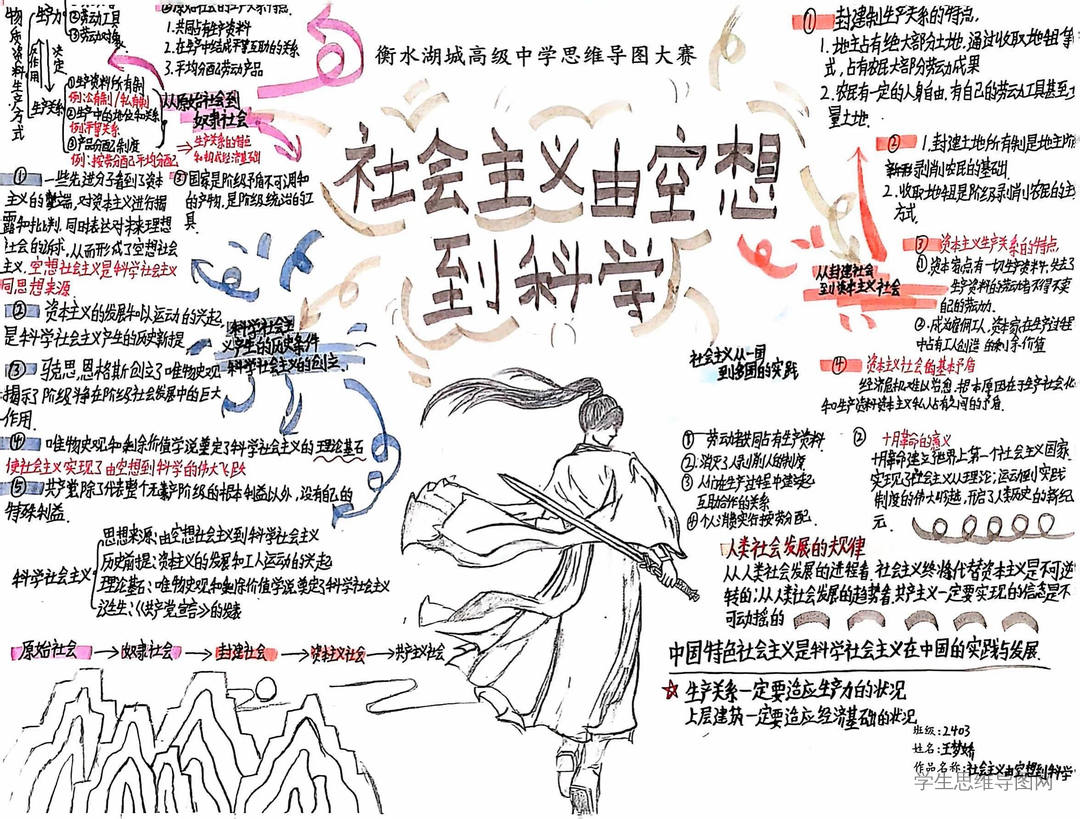 衡水湖城高级中学思维导图大赛
社会主义由空想
到科学
物质资料生产方式
生产力
②劳动工具
③劳动对象
反作用
决定
生产关系
①生产资料所有制
例:公有制/私有制
②生产中的地位和关系
例:平等关系
③产品分配制度
例:按劳分配,平均分配
1.共同占有生产资料
2.在生产中结成平等互助的关系
3.平均分配劳动产品
从原始社会到
奴隶社会
②国家是阶级矛盾不可调和
的产物,是阶级统治的工
具.
① 一些先进分子看到了资本
主义的弊端,对资本主义进行揭
露和批判,同时表达对未来理想
社会的诉求,从而形成了空想社会
主义.空想社会主义是科学社会主义
同思想来源
② 资本主义的发展和以运动的兴起,
是科学社会主义产生的历史前提.
③ 马克思,恩格斯创立了唯物史观
揭示了阶级斗争在阶级社会发展中的巨大
作用.
④ 唯物史观和剩余价值学说奠定了科学社会主义的理论基石
使社会主义实现了由空想到科学的伟大飞跃
⑤ 共产党,除了代表整个无产阶级的根本利益以外,没有自己的
特殊利益.
科学社会主
义产生的历史条件
科学社会主义的创立.
科学社会主义
思想来源:由空想社会主义到科学社会主义
历史前提:资本主义的发展和工人运动的兴起
理论基石:唯物史观和剩余价值学说奠定了科学社会主义
诞生:《共产党宣言》的发表
原始社会→奴隶社会→封建社会→资本主义社会→共产主义社会
① 封建制生产关系的特点.
1.地主占有绝大部分土地,通过收取地租等
式,占有农民大部分劳动成果
2.农民有一定的人身自由,有自己的劳动工具甚至
量土地.
② 1.封建土地所有制是地主阶
剥削农民的基础.
2.收取地租是阶级剥削农民的主
方式.
从封建社会
到资本主义社会
③ 资本主义生产关系的特点.
①资本家占有一切生产资料,失去了
生产资料的劳动者不得不卖
自己的劳动力.
②成为雇佣工人,资本家在生产过程
中占有工人创造的剩余价值
④ 资本主义社会的基本矛盾
经济危机难以避免,根本原因在于生产社会化
和生产资料资本主义私人占有之间的矛盾.
社会主义从一国
到多国的实践
① 劳动者共同占有生产资料
②消灭了人剥削人的制度
③ 人们在生产过程中建立起
互助合作的关系
④个人消费实行按劳分配.
② 十月革命的意义
十月革命建立世界上第一个社会主义国家.
实现了社会主义从理论,运动到实践
制度的伟大跨越,开启了人类历史的新纪
元.
人类社会发展的规律
从人类社会发展的进程看,社会主义终将代替资本主义是不可逆
转的;从人类社会发展的趋势看,共产主义一定要实现的信念是不
可动摇的
中国特色社会主义是科学社会主义在中国的实践与发展.
☆ 生产关系一定要适应生产力的状况
上层建筑一定要适应经济基础的状况
班级:2403
姓名:王梦娇
作品名称:社会主义由空想到科学
学生思维导图网